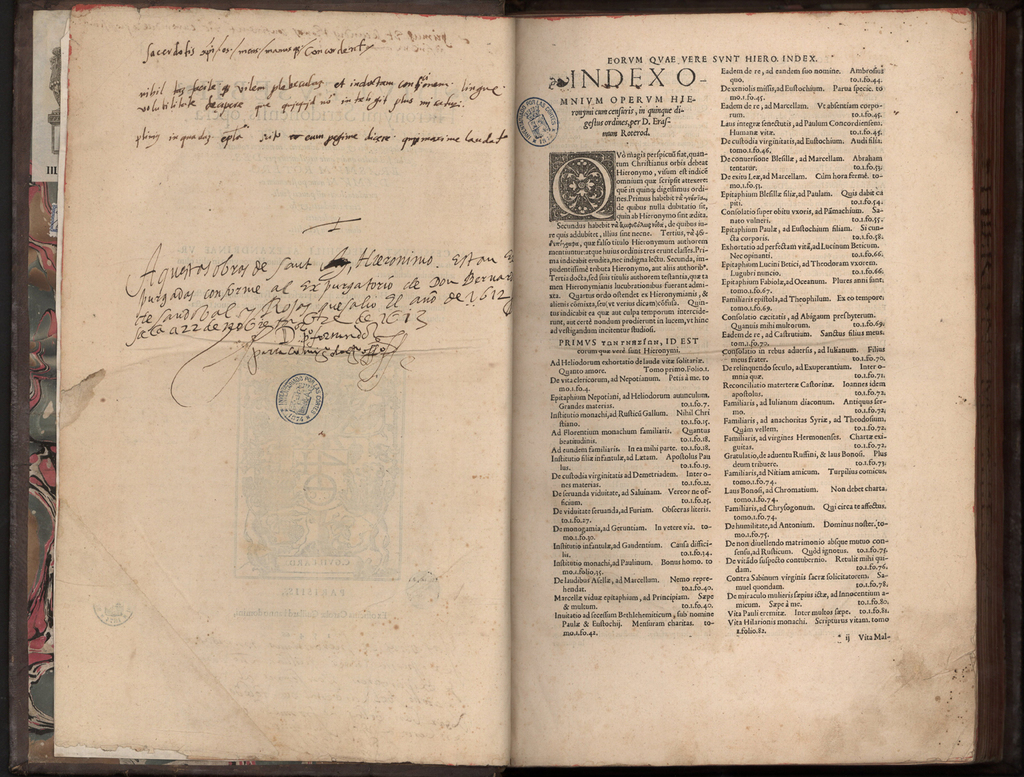 Sacerdotis concordent
nihil tam facile vilem plebeculam et indoctam linguae
volubilitate decipere quidquid non intelligit plus
III
Aquestas obras de Sant Hieronimo. Estan Ex
purgadas conforme al Expurgatorio de Don Bernar
de Sandobal y Rojas que salio el año de 1612
a 22 de 1613
EORVM QVAE VERE SVNT HIERO. INDEX.
INDEX O-
MNIVM OPERVM HIE-
ronymi cum censuris, in quinque di-
gestus ordines, per D. Eras-
mum Roterod.
QVo magis perspicuū fiat, quan-
tum Christianus orbis debeat
Hieronymo, visum est indicē
omnium quæ scripsit attexere:
quē in quinq; digessimus ordi-
nes. Primus habebit τὰ γνήσια,
de quibus nulla dubitatio sit,
quin ab Hieronymo sint ædita.
Secundus habebit de quibus iu-
re quis addubitet, illius sint necne. Tertius,
quæ falso titulo Hieronymum authorem
mentiuntur: atque huius ordinis tres erunt classes. Pri-
ma indicabit erudita, nec indigna lectu. Secunda, im-
pudentissime tributa Hieronymo, aut aliis authoribꝰ.
Tertis docta, sed suis titulis authorem testantia, quæ ta
men Hieronymianis lucubrationibus fuerant admi-
xta. Quartus ordo ostendet ex Hieronymianis, &
alienis cōmixta, seu vt verius dicam, cōfusa. Quin-
tus indicabit ea quæ aut culpa temporum intercide-
runt, aut certe nondum prodierunt in lucem, vt hinc
ad vestigandum incitentur studiosi.
PRIMVS ΤΩΝ ΓΝΗΣΙΩΝ, ID EST
eorum quæ verè sunt Hieronymi.
Ad Heliodorum exhortatio de laude vitæ solitariæ.
Quanto amore. Tomo primo. Folio.1.
De vita clericorum, ad Nepotianum. Petis à me. to-
mo.1.fo.4.
Epitaphium Nepotiani, ad Heliodorum auunculum.
Grandes materias. to.1.fo.7.
Institutio monachi, ad Rusticū Gallum. Nihil Chri
stiano. to.1.fo.15.
Ad Florentium monachum familiaris. Quantus
beatitudinis. to.1.fo.18.
Ad eundem familiaris. In ea mihi parte. to.1.fo.18.
Institutio filiæ infantulæ, ad Lætam. Apostolus Pau
lus. to.1.fo.19.
De custodia virginitatis ad Demetriadem. Inter o-
nes materias. to.1.fo.22.
De seruanda viduitate, ad Saluinam. Vereor ne of-
ficium. to.1.fo.25.
De viduitate seruanda, ad Furiam. Obsecras literis.
to.1.fo.27.
De monogamia, ad Geruntiam. In vetere via. to-
mo.1.fo.30.
Institutio infantulæ, ad Gaudentium. Causa diffici-
lis. to.1.fo.34.
Institutio monachi, ad Paulinum. Bonus homo. to
mo.1.folio.35.
De laudibus Asellæ, ad Marcellam. Nemo repre-
hendat. to.1.fo.40.
Marcellæ viduæ epitaphium, ad Principiam. Sæpe
& multum. to.1.fo.40.
Inuitatio ad secessum Bethlehemiticum, sub nomine
Paulæ & Eustochij. Mensuram charitas. to-
mo.1.fo.42.
Eadem de re, ad eandem suo nomine. Ambrosius
quo. to.1.fo.44.
De xeniolis missis, ad Eustochium. Parua specie. to
mo.1.fo.45.
Eadem de re, ad Marcellam. Vt absentiam corpo-
rum. to.1.fo.45.
Laus integræ senectutis, ad Paulum Concordiensem.
Humanæ vitæ. to.1.fo.45.
De custodia virginitatis, ad Eustochium. Audi filia.
tomo.1.fo.46.
De conuersione Blesillæ, ad Marcellam. Abraham
tentatur. to.1.fo.53.
De exitu Leæ, ad Marcellam. Cùm hora fermè. to-
mo.1.fo.53.
Epitaphium Blesillæ filiæ, ad Paulam. Quis dabit ca
piti. to.1.fo.54.
Consolatio super obitu vxoris, ad Pāmachium. Sa-
nato vulneri. to.1.fo.55.
Epitaphium Paulæ, ad Eustochium filiam. Si cun-
cta corporis. to.1.fo.58.
Exhortatio ad perfectam vitā, ad Lucinium Beticum.
Nec opinanti. to.1.fo.66.
Epitaphium Lucini Betici, ad Theodoram vxorem.
Lugubri nuncio. to.1.fo.66.
Epitaphium Fabiolæ, ad Oceanum. Plures anni sunt.
tomo.1.fo.67.
Familiaris epistola, ad Theophilum. Ex eo tempore.
tomo.1.fo.69.
Consolatio cæcitatis, ad Abigaum presbyterum.
Quanuis mihi multorum. to.1.fo.69.
Eadem de re, ad Castrutium. Sanctus filius meus.
tom.1.fo.70.
Consolatio in rebus aduersis, ad Iulianum. Filius
meus frater. to.1.fo.70.
De relinquendo seculo, ad Exuperantium. Inter o-
mnia quæ. to.1.fo.71.
Reconciliatio materteræ Castorinæ. Ioannes idem
apostolus. to.1.fo.72.
Familiaris, ad Iulianum diaconum. Antiquus ser-
mo. to.1.fo.72.
Familiaris, ad anachoritas Syriæ, ad Theodosium.
Quàm vellem. to.1.fo.72.
Familiaris, ad virgines Hermonenses. Chartæ exi-
guitas. to.1.fo.72.
Gratulatio, de aduentu Ruffini, & laus Bonosi. Plus
deum tribuere. to.1.fo.73.
Familiaris, ad Nitiam amicum. Turpilius comicus.
tomo.1.fo.74.
Laus Bonosi, ad Chromatium. Non debet charta.
tomo.1.fo.74.
Familiaris, ad Chrysogonum. Qui circa te affectus.
tomo.1.fo.74.
De humilitate, ad Antonium. Dominus noster. to-
mo.1.fo.75.
De non diuellendo matrimonio absque mutuo con-
sensu, ad Rusticum. Quòd ignotus. to.1.fo.75.
De vitādo suspecto contubernio. Retulit mihi qui-
dam. to.1.fo.76.
Contra Sabinum virginis sacræ solicitatorem. Sa-
muel quondam. to.1.fo.78.
De miraculo mulieris sæpius ictæ, ad Innocentium a-
micum. Sæpe à me. to.1.fo.80.
Vita Pauli eremitæ. Inter multos sæpe. to.1.fo.81.
Vita Hilarionis monachi. Scripturus vitam. tomo
1.folio.82.
* ij Vita Mal-